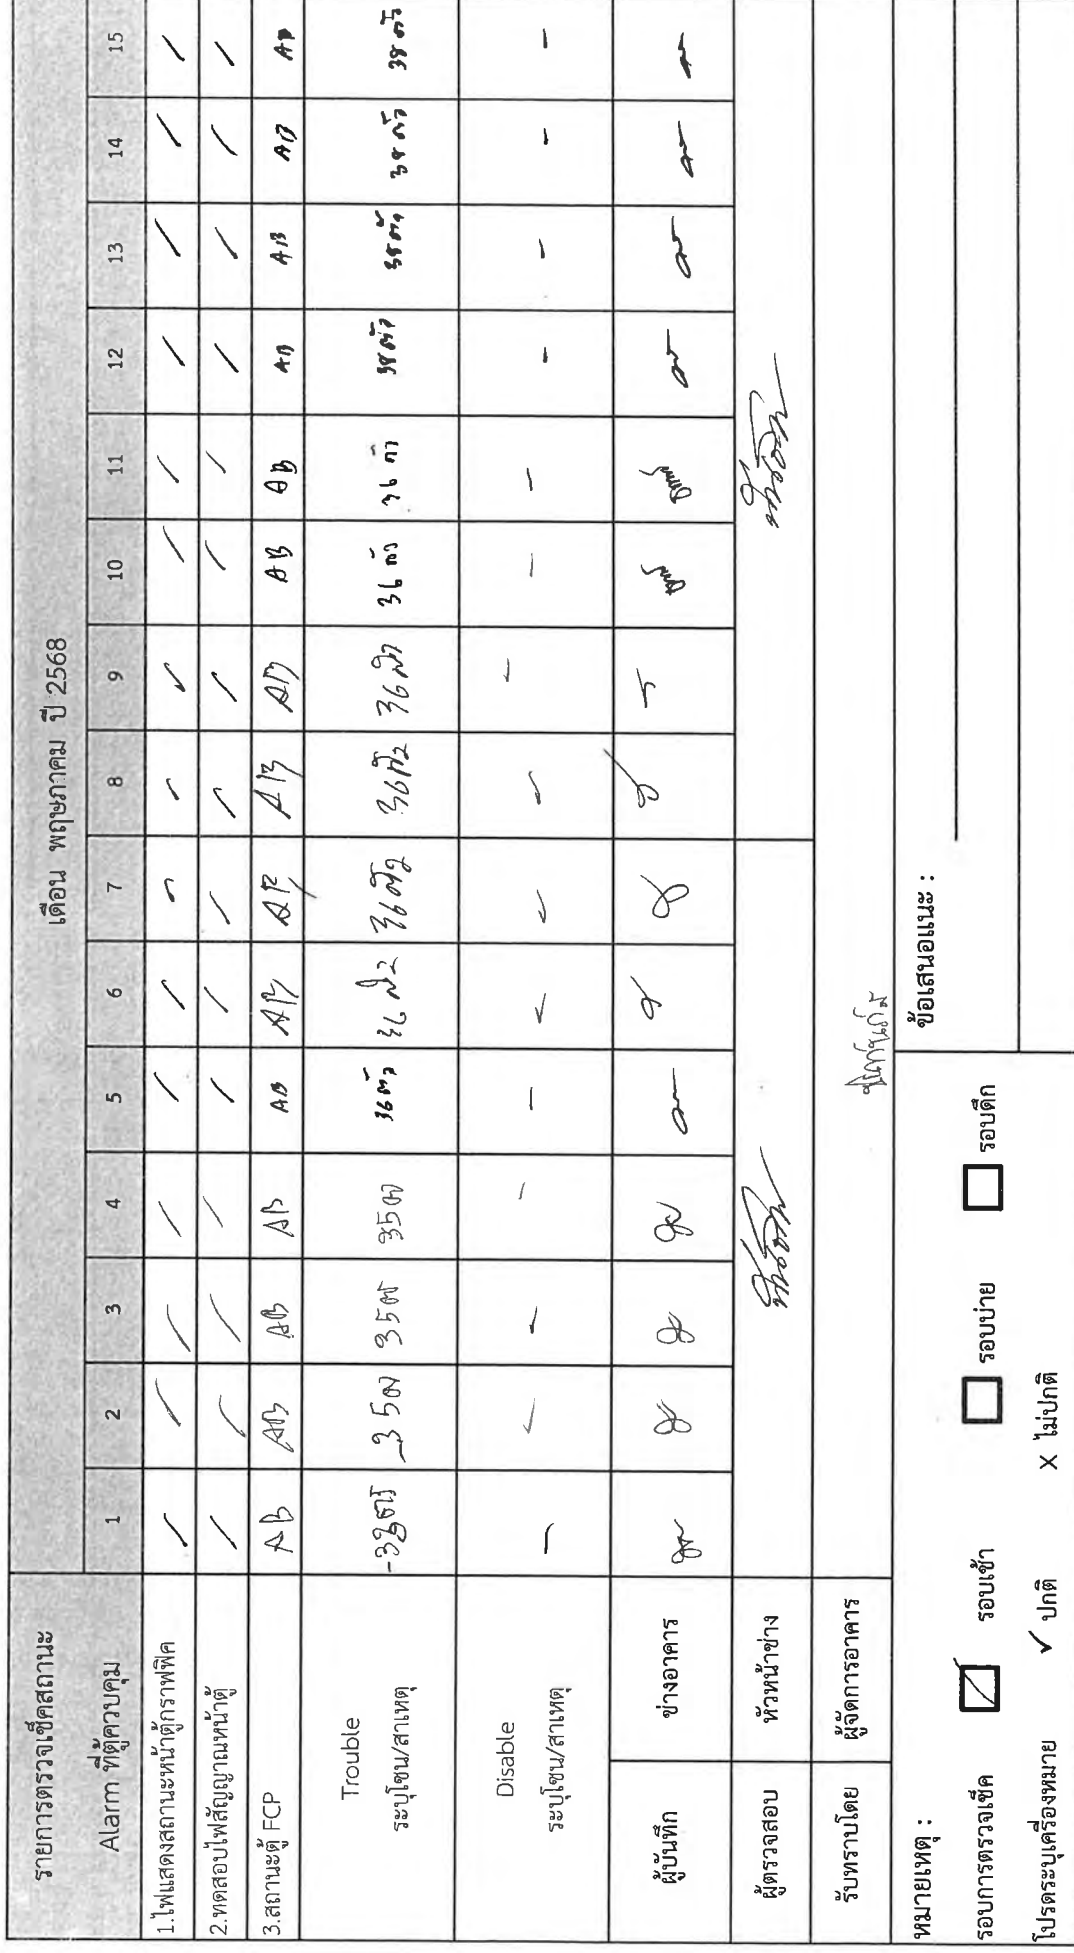 รายการตรวจเช็คสถานะ เดือน พฤษภาคม ปี 2568
Alarm ที่ตู้ควบคุม 1 2 3 4 5 6 7 8 9 10 11 12 13 14 15
1.ไฟแสดงสถานะหน้าตู้กราฟฟิค / / / / / / / / ✓ / / / / / /
2.ทดสอบไฟสัญญาณหน้าตู้ / / / / / / / / / / / / / / /
3.สถานะตู้ FCP AB AB AB AB AB AB AB AB AB AB AB AB AB AB AB
Trouble
ระบุโซน/สาเหตุ 35 35 35 36 ตัว 36 ตัว 36 ตัว 36 ตัว 36 ตัว 36 ตัว 36 ตัว 38 ตัว 38 ตัว 38 ตัว 38 ตัว
Disable
ระบุโซน/สาเหตุ - - - - - - - - - - - - - - -
ผู้บันทึก ช่างอาคาร
ผู้ตรวจสอบ หัวหน้าช่าง
รับทราบโดย ผู้จัดการอาคาร
หมายเหตุ : ข้อเสนอแนะ :
รอบการตรวจเช็ค รอบเช้า รอบบ่าย รอบดึก
โปรดระบุเครื่องหมาย ✓ ปกติ X ไม่ปกติ